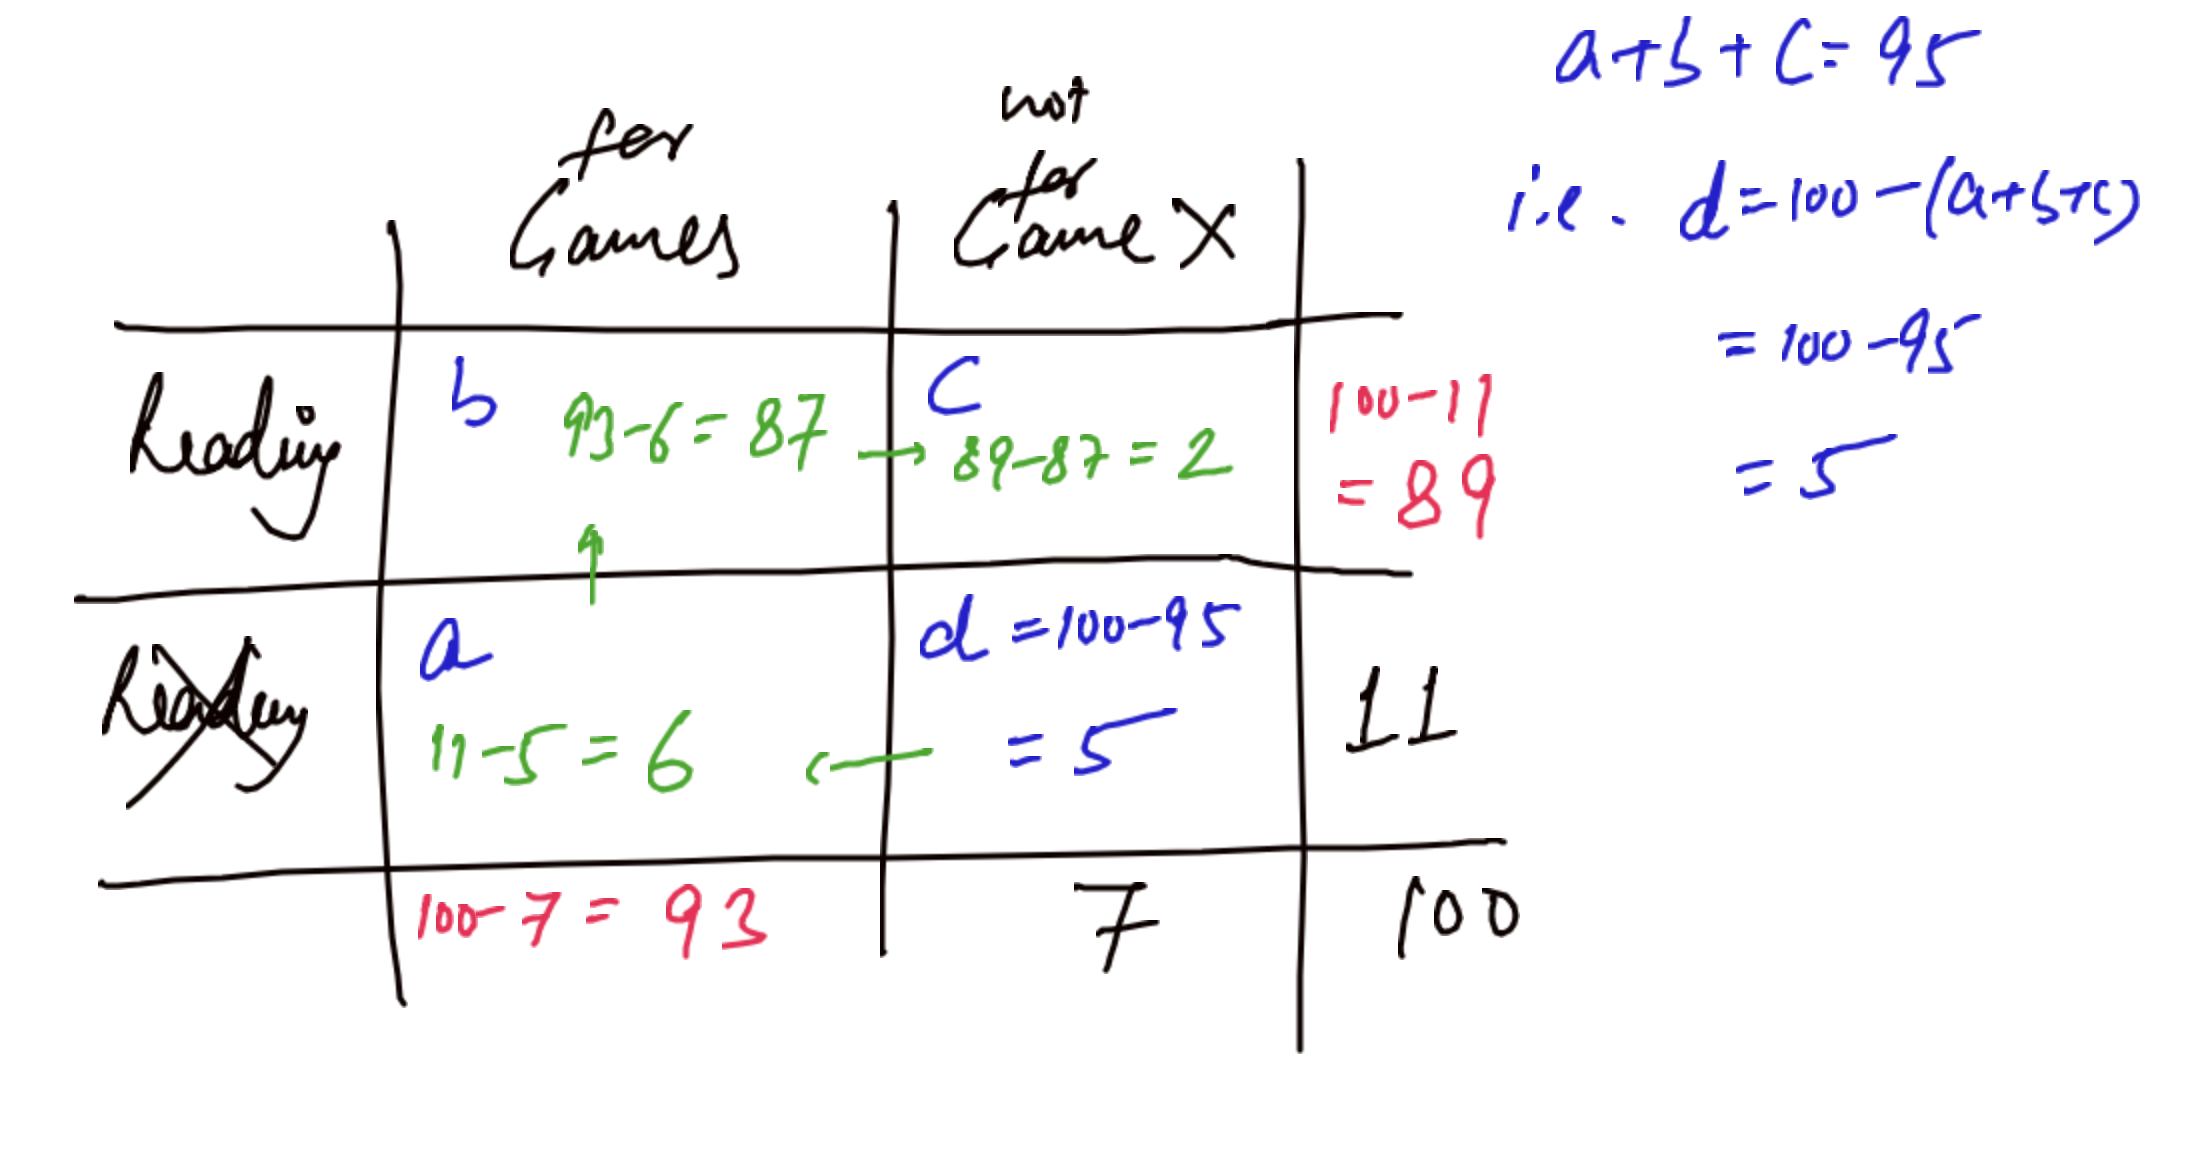 a+b+c=95
for
Games
not
for
Game X
i.e. d=100-(a+b+c)
=100-95
=5
Reading
b
93-6=87
→
c
89-87=2
100-11
=89
↑
Reading
a
11-5=6
←
d=100-95
=5
11
100-7=93
7
100